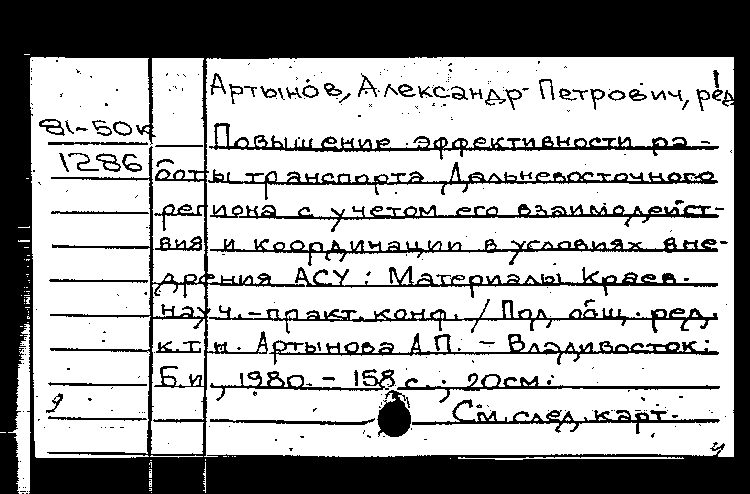 Артынов, Александр Петрович, ред
81-50к
1286
Повышение эффективности ра-
боты транспорта Дальневосточного
региона с учетом его взаимодейст-
вия и координации в условиях вне-
дрения АСУ: Материалы Краев.
науч.-практ. конф. / Под общ. ред.
к.т.н. Артынова А.П. - Владивосток:
Б.и., 1980. - 158 с.; 20см.
См. след. карт.